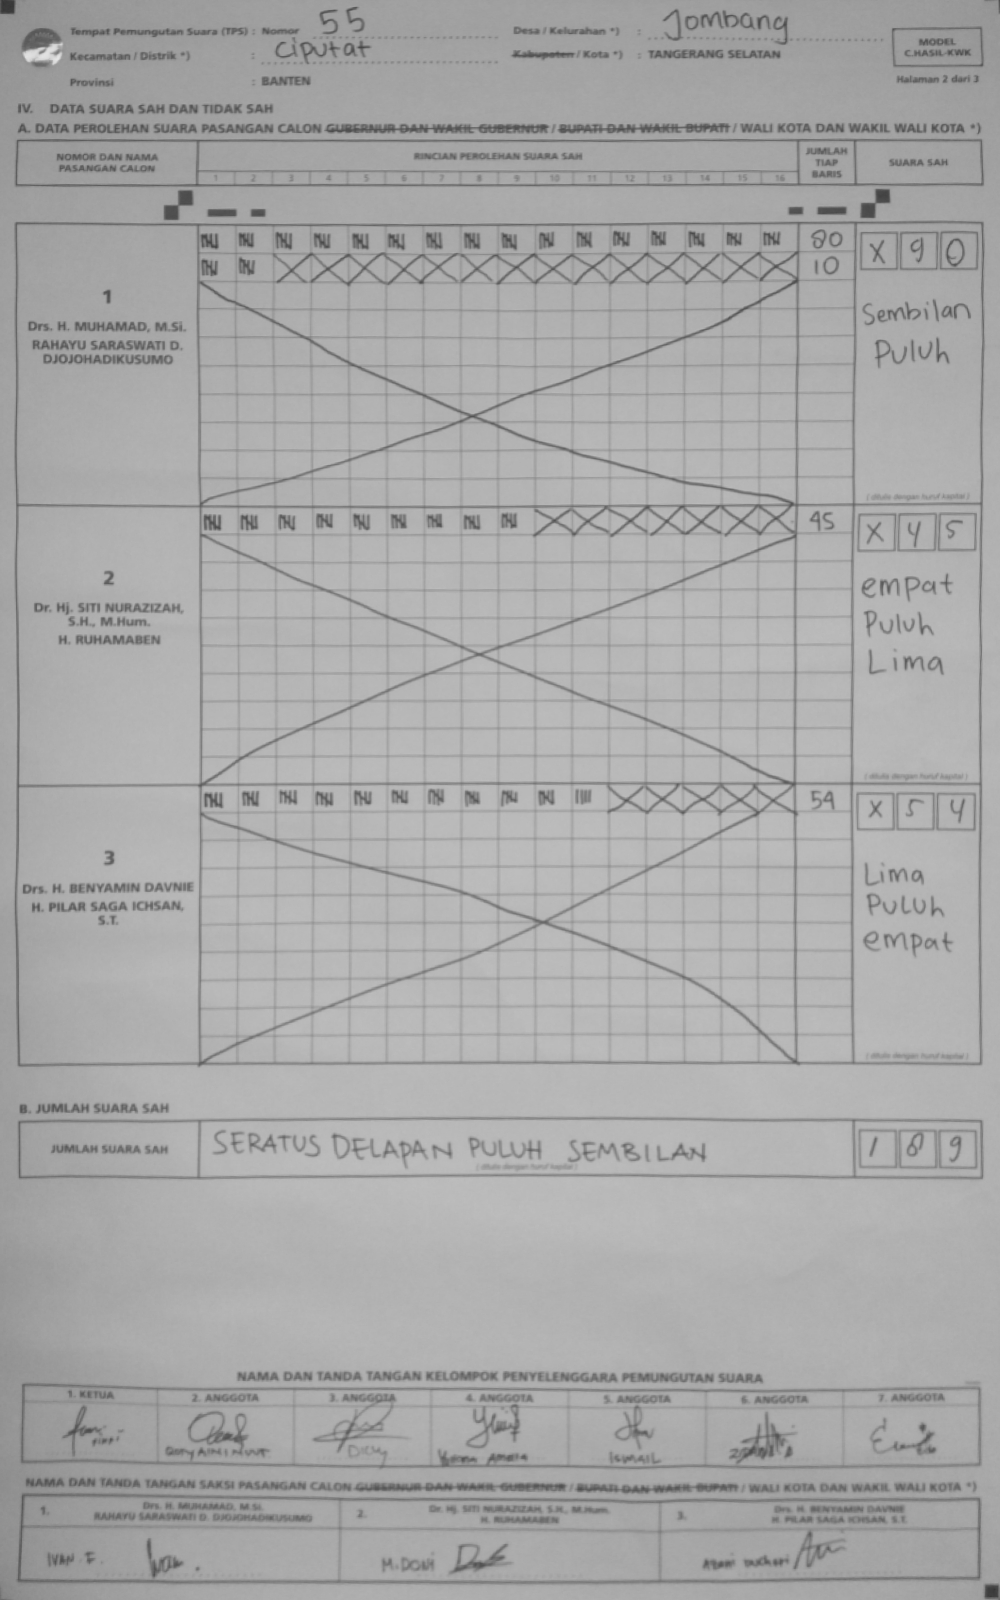 Tempat Pemungutan Suara (TPS) : Nomor 55 Desa / Kelurahan *) : Jombang
Kecamatan / Distrik *) : Ciputat Kabupaten / Kota *) : TANGERANG SELATAN
Provinsi : BANTEN
MODEL
C.HASIL-KWK
Halaman 2 dari 3
IV. DATA SUARA SAH DAN TIDAK SAH
A. DATA PEROLEHAN SUARA PASANGAN CALON GUBERNUR DAN WAKIL GUBERNUR / BUPATI DAN WAKIL BUPATI / WALI KOTA DAN WAKIL WALI KOTA *)
NOMOR DAN NAMA
PASANGAN CALON
RINCIAN PEROLEHAN SUARA SAH
1 2 3 4 5 6 7 8 9 10 11 12 13 14 15 16
JUMLAH
TIAP
BARIS
SUARA SAH
1
Drs. H. MUHAMAD, M.Si.
RAHAYU SARASWATI D.
DJOJOHADIKUSUMO
80
10
X 9 0
Sembilan
Puluh
( ditulis dengan huruf kapital )
2
Dr. Hj. SITI NURAZIZAH,
S.H., M.Hum.
H. RUHAMABEN
45
X 4 5
empat
Puluh
Lima
( ditulis dengan huruf kapital )
3
Drs. H. BENYAMIN DAVNIE
H. PILAR SAGA ICHSAN,
S.T.
54
X 5 4
Lima
PULUH
empat
( ditulis dengan huruf kapital )
B. JUMLAH SUARA SAH
JUMLAH SUARA SAH
SERATUS DELAPAN PULUH SEMBILAN
( ditulis dengan huruf kapital )
1 8 9
NAMA DAN TANDA TANGAN KELOMPOK PENYELENGGARA PEMUNGUTAN SUARA
1. KETUA 2. ANGGOTA 3. ANGGOTA 4. ANGGOTA 5. ANGGOTA 6. ANGGOTA 7. ANGGOTA
DICKY
ISMAIL
NAMA DAN TANDA TANGAN SAKSI PASANGAN CALON GUBERNUR DAN WAKIL GUBERNUR / BUPATI DAN WAKIL BUPATI / WALI KOTA DAN WAKIL WALI KOTA *)
1. Drs. H. MUHAMAD, M.Si.
RAHAYU SARASWATI D. DJOJOHADIKUSUMO
2. Dr. Hj. SITI NURAZIZAH, S.H., M.Hum.
H. RUHAMABEN
3. Drs. H. BENYAMIN DAVNIE
H. PILAR SAGA ICHSAN, S.T.
IVAN. F.
M. DONI